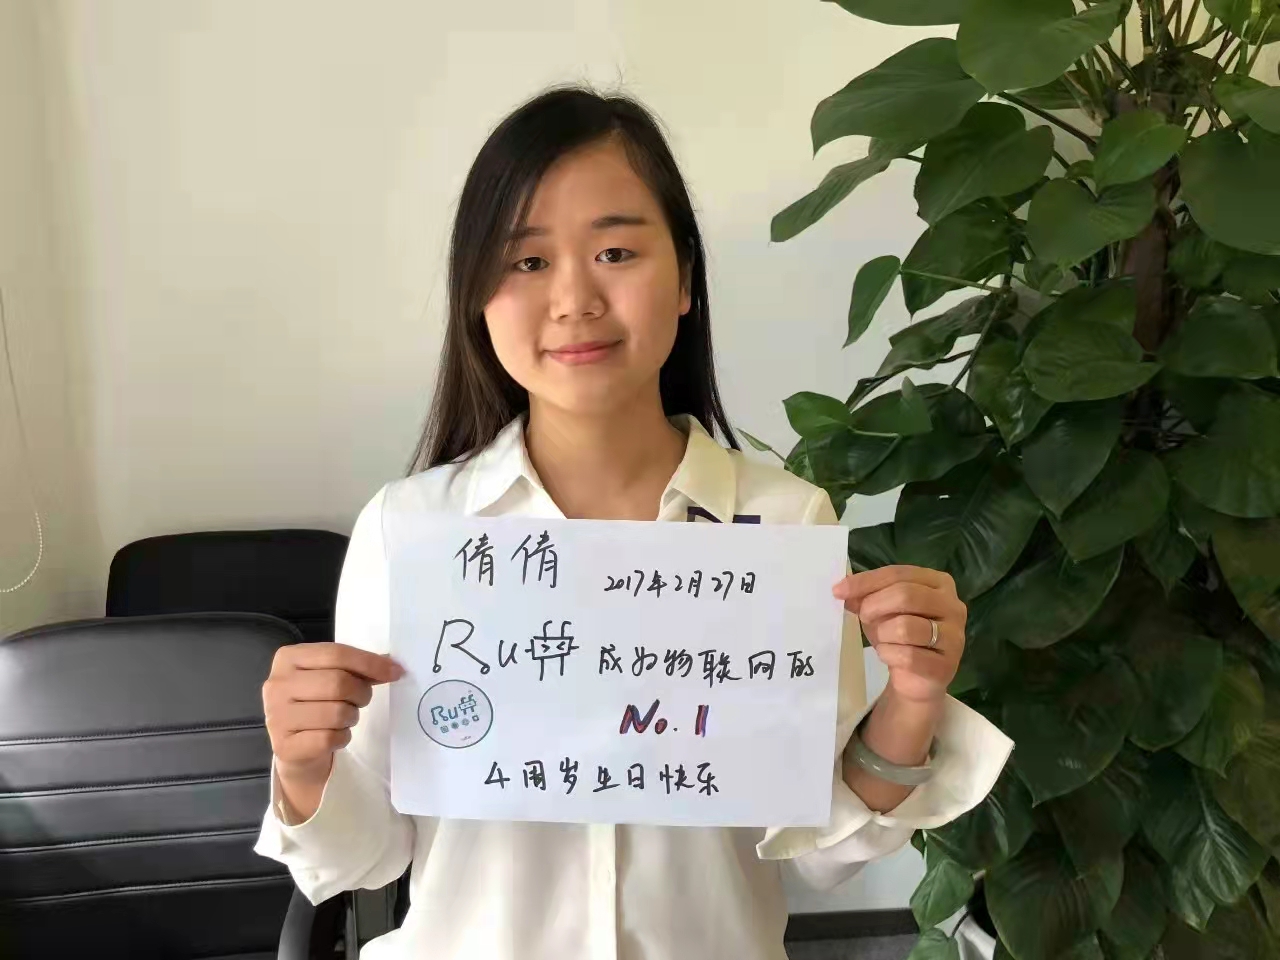 倩倩 2017年2月27日
Ruff 成为物联网的
Ruff
No.1
4周岁生日快乐